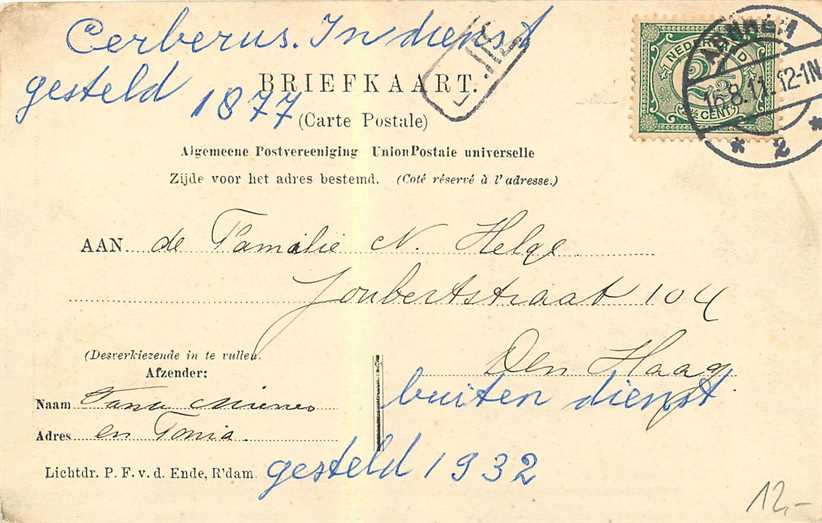 Cerberus. In dienst
gesteld 1877
BRIEFKAART.
(Carte Postale)
Algemeene Postvereeniging Union Postale universelle
Zijde voor het adres bestemd. (Coté réservé à l'adresse.)
NEDERLAND
2½
CENT
16.8.11. 12-1N
* 2 *
AAN de Familie N. Helge.
Joubertstraat 104
Den Haag
(Desverkiezende in te vullen.
Afzender:
Naam Tante
Adres en Tonia.
buiten dienst
gesteld 1932
Lichtdr. P. F. v. d. Ende, R'dam.
12,-